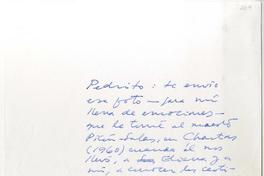 Pedrito: te envío
esa foto — para mí
llena de emociones —
que le tomé al maestro
Picón-Salas, en Chartres
(1960) cuando él nos
llevó, a Eliana y a
mí, a conocer la